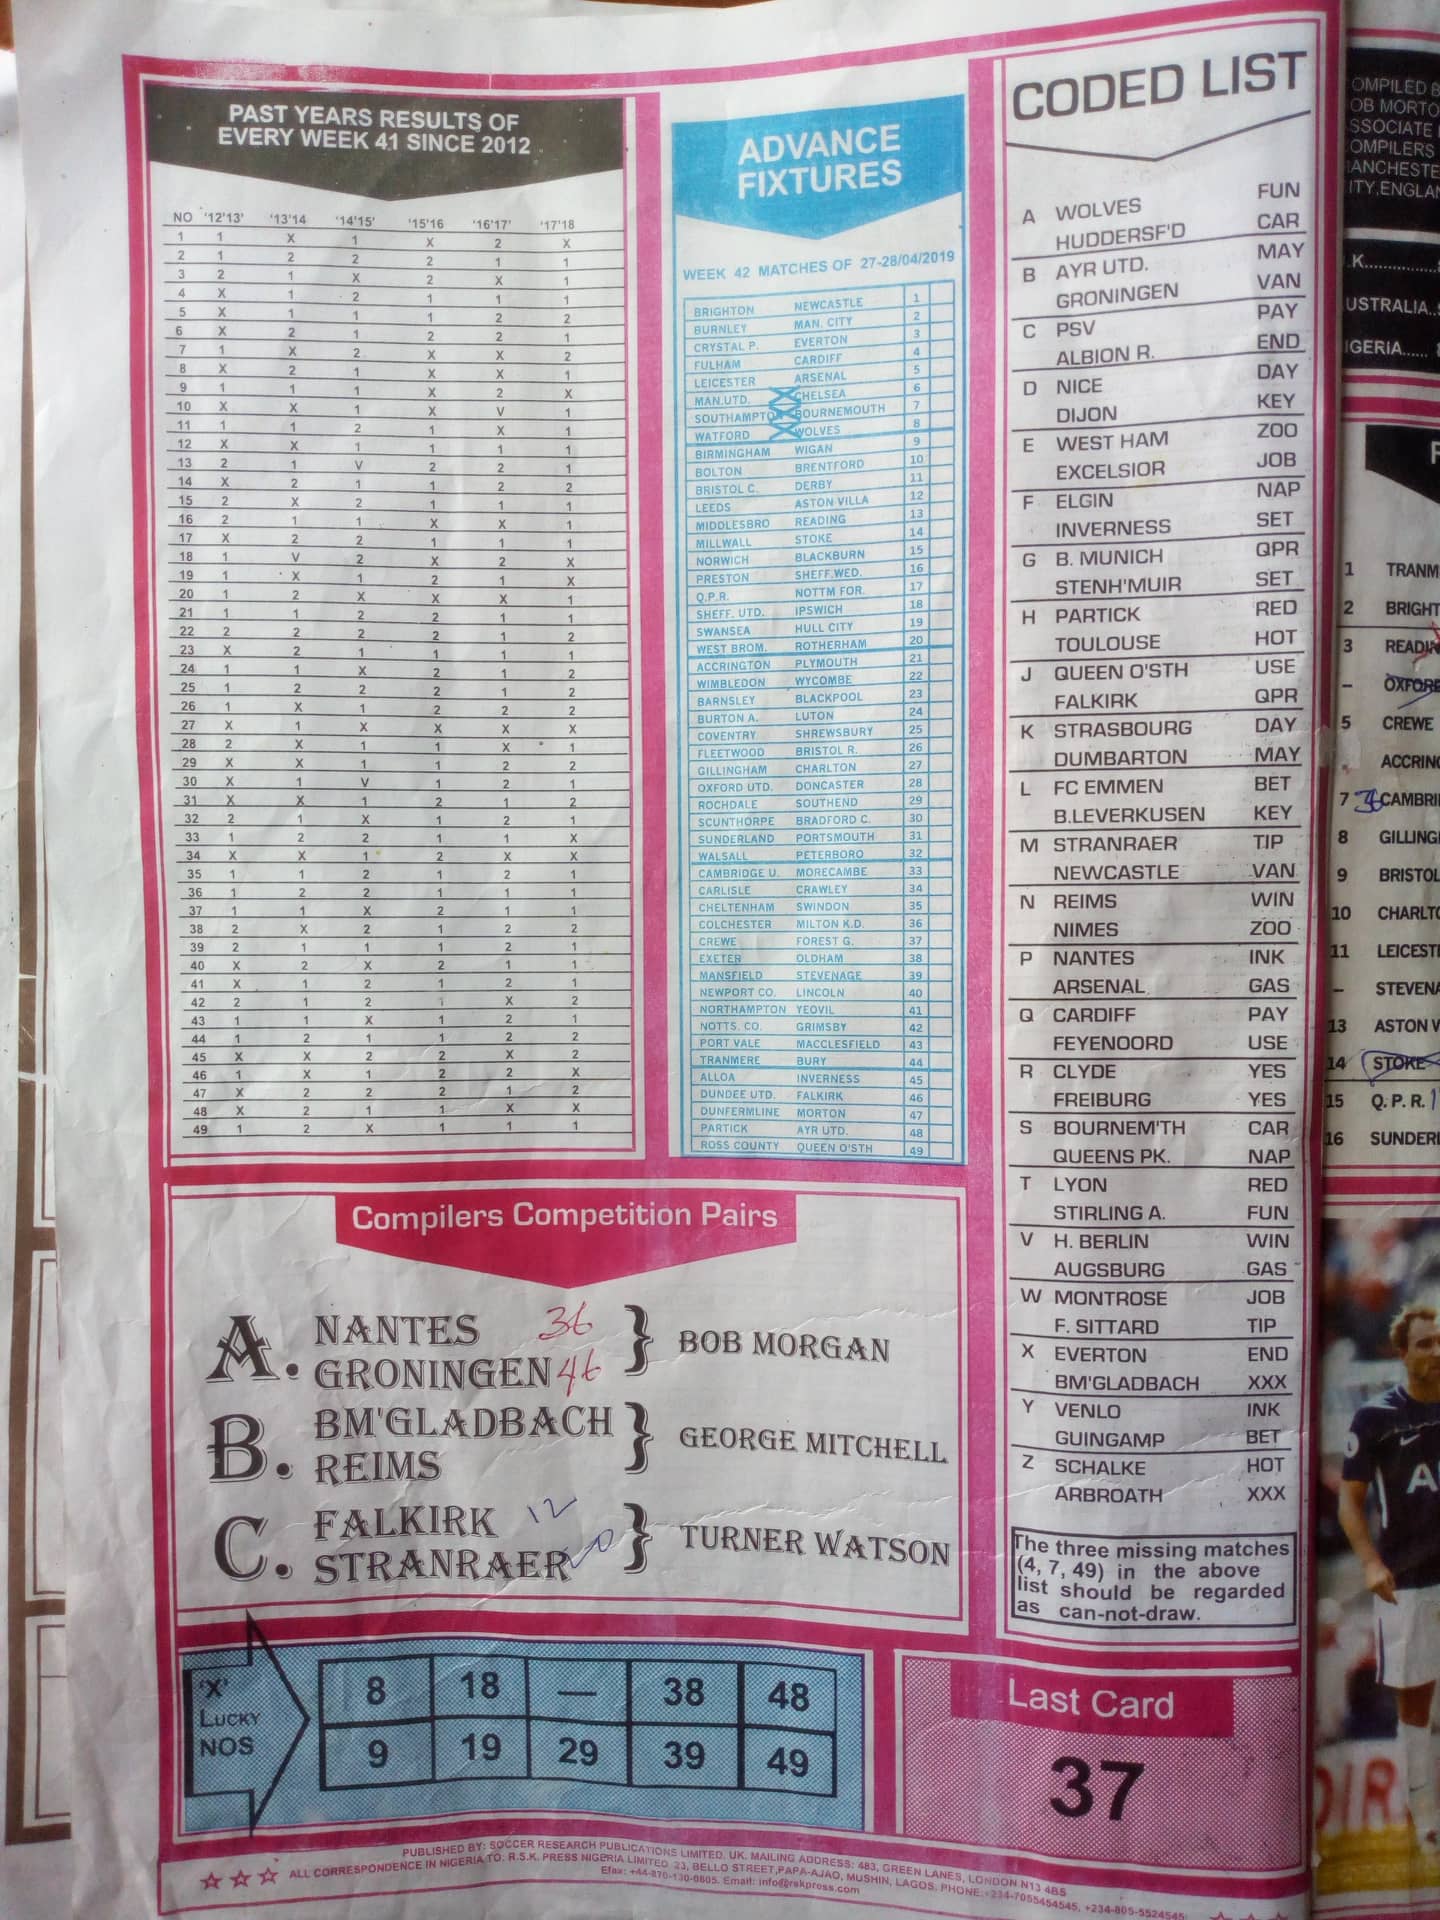 PAST YEARS RESULTS OF
EVERY WEEK 41 SINCE 2012
NO '12'13' '13'14 '14'15' '15'16 '16'17' '17'18
1 1 X 1 X 2 X
2 1 2 2 2 1 1
3 2 1 X 2 X 1
4 X 1 2 1 1 1
5 X 1 1 1 2 2
6 X 2 1 2 2 1
7 1 X 2 X X 2
8 X 2 1 X X 1
9 1 1 1 X 2 X
10 X X 1 X V 1
11 1 1 2 1 X 1
12 X X 1 1 1 1
13 2 1 V 2 2 1
14 X 2 1 1 2 2
15 2 X 2 1 1 1
16 2 1 1 X X 1
17 X 2 2 1 1 1
18 1 V 2 X 2 X
19 1 X 1 2 1 X
20 1 2 X X X 1
21 1 1 2 2 1 1
22 2 2 2 2 1 2
23 X 2 1 1 1 1
24 1 1 X 2 1 2
25 1 2 2 2 1 2
26 1 X 1 2 2 2
27 X 1 X X X X
28 2 X 1 1 X 1
29 X X 1 1 2 2
30 X 1 V 1 2 1
31 X X 1 2 1 2
32 2 1 X 1 2 1
33 1 2 2 1 1 X
34 X X 1 2 X X
35 1 1 2 1 2 1
36 1 2 2 1 1 1
37 1 1 X 2 1 1
38 2 X 2 1 2 2
39 2 1 1 1 2 1
40 X 2 X 2 1 1
41 X 1 2 1 2 1
42 2 1 2 1 X 2
43 1 1 X 1 2 1
44 1 2 1 1 2 2
45 X X 2 2 X 2
46 1 X 1 2 2 X
47 X 2 2 2 1 2
48 X 2 1 1 X X
49 1 2 X 1 1 1
ADVANCE
FIXTURES
WEEK 42 MATCHES OF 27-28/04/2019
BRIGHTON NEWCASTLE 1
BURNLEY MAN. CITY 2
CRYSTAL P. EVERTON 3
FULHAM CARDIFF 4
LEICESTER ARSENAL 5
MAN.UTD. CHELSEA 6
SOUTHAMPTON BOURNEMOUTH 7
WATFORD WOLVES 8
BIRMINGHAM WIGAN 9
BOLTON BRENTFORD 10
BRISTOL C. DERBY 11
LEEDS ASTON VILLA 12
MIDDLESBRO READING 13
MILLWALL STOKE 14
NORWICH BLACKBURN 15
PRESTON SHEFF.WED. 16
Q.P.R. NOTTM FOR. 17
SHEFF. UTD. IPSWICH 18
SWANSEA HULL CITY 19
WEST BROM. ROTHERHAM 20
ACCRINGTON PLYMOUTH 21
WIMBLEDON WYCOMBE 22
BARNSLEY BLACKPOOL 23
BURTON A. LUTON 24
COVENTRY SHREWSBURY 25
FLEETWOOD BRISTOL R. 26
GILLINGHAM CHARLTON 27
OXFORD UTD. DONCASTER 28
ROCHDALE SOUTHEND 29
SCUNTHORPE BRADFORD C. 30
SUNDERLAND PORTSMOUTH 31
WALSALL PETERBORO 32
CAMBRIDGE U. MORECAMBE 33
CARLISLE CRAWLEY 34
CHELTENHAM SWINDON 35
COLCHESTER MILTON K.D. 36
CREWE FOREST G. 37
EXETER OLDHAM 38
MANSFIELD STEVENAGE 39
NEWPORT CO. LINCOLN 40
NORTHAMPTON YEOVIL 41
NOTTS. CO. GRIMSBY 42
PORT VALE MACCLESFIELD 43
TRANMERE BURY 44
ALLOA INVERNESS 45
DUNDEE UTD. FALKIRK 46
DUNFERMLINE MORTON 47
PARTICK AYR UTD. 48
ROSS COUNTY QUEEN O'STH 49
CODED LIST
A WOLVES FUN
HUDDERSF'D CAR
B AYR UTD. MAY
GRONINGEN VAN
C PSV PAY
ALBION R. END
D NICE DAY
DIJON KEY
E WEST HAM ZOO
EXCELSIOR JOB
F ELGIN NAP
INVERNESS SET
G B. MUNICH QPR
STENH'MUIR SET
H PARTICK RED
TOULOUSE HOT
J QUEEN O'STH USE
FALKIRK QPR
K STRASBOURG DAY
DUMBARTON MAY
L FC EMMEN BET
B.LEVERKUSEN KEY
M STRANRAER TIP
NEWCASTLE VAN
N REIMS WIN
NIMES ZOO
P NANTES INK
ARSENAL GAS
Q CARDIFF PAY
FEYENOORD USE
R CLYDE YES
FREIBURG YES
S BOURNEM'TH CAR
QUEENS PK. NAP
T LYON RED
STIRLING A. FUN
V H. BERLIN WIN
AUGSBURG GAS
W MONTROSE JOB
F. SITTARD TIP
X EVERTON END
BM'GLADBACH XXX
Y VENLO INK
GUINGAMP BET
Z SCHALKE HOT
ARBROATH XXX
The three missing matches
(4, 7, 49) in the above
list should be regarded
as can-not-draw.
Compilers Competition Pairs
A. NANTES 36
GRONINGEN 46
BOB MORGAN
B. BM'GLADBACH
REIMS
GEORGE MITCHELL
C. FALKIRK 12
STRANRAER
TURNER WATSON
'X'
LUCKY
NOS
8 18 — 38 48
9 19 29 39 49
Last Card
37
PUBLISHED BY: SOCCER RESEARCH PUBLICATIONS LIMITED. UK. MAILING ADDRESS: 483, GREEN LANES, LONDON N13 4BS
ALL CORRESPONDENCE IN NIGERIA TO: R.S.K. PRESS NIGERIA LIMITED. 23, BELLO STREET,PAPA-AJAO, MUSHIN, LAGOS. PHONE:+234-7055454545, +234-805-5524545
Efax: +44-870-130-0805. Email: info@rskpress.com
OMPILED B
OB MORTO
SSOCIATE
OMPILERS
MANCHESTE
ITY,ENGLAN
.K................
USTRALIA..
IGERIA......
1 TRANM
2 BRIGHT
3 READIN
- OXFORD
5 CREWE
ACCRING
7 36 CAMBRI
8 GILLING
9 BRISTOL
10 CHARLTO
11 LEICEST
- STEVENA
13 ASTON V
14 STOKE
15 Q.P.R.
16 SUNDERL